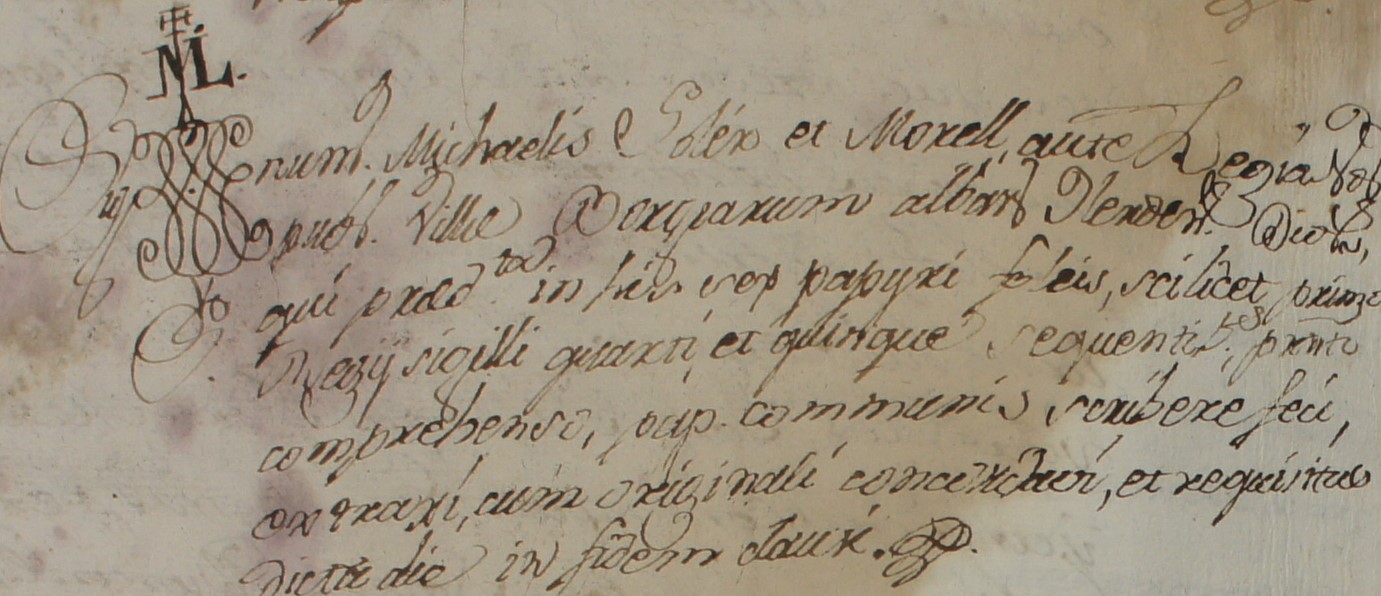 ML.
Sig✠num. Michaelis Soler et Morell, aucte Regia Not
publ. Ville Borgiarum albar. Ilerden. Dioc,
qui praed.ta in his sex papyri foleis, scilicet primo
Regij sigilli quarti, et quinque sequentib. pnti
comprehenso, pap. communis scribere feci,
extraxi, cum originali concordavi, et requisitus
dicta die in fidem clausi.